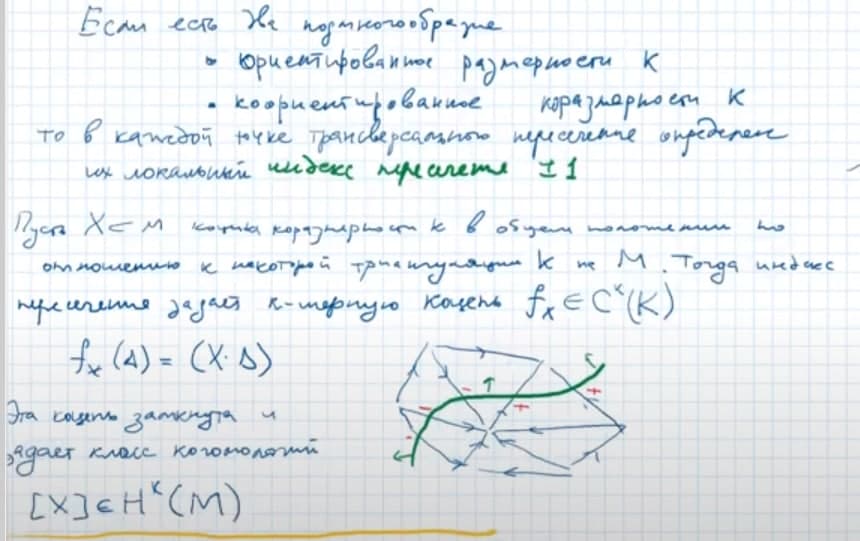 Если есть два подмногообразия
• ориентированное размерности k
• коориентированное коразмерности k
то в каждой точке трансверсального пересечения определен
их локальный индекс пересечения ±1
Пусть X⊂M коцикл коразмерности k в общем положении по
отношению к некоторой триангуляции K на M. Тогда индекс
пересечения задает k-мерную коцепь fₓ ∈ Cᵏ(K)
fₓ(Δ) = (X·Δ)
Эта коцепь замкнута и
задает класс когомологий
[X]∈Hᵏ(M)
- - - + +